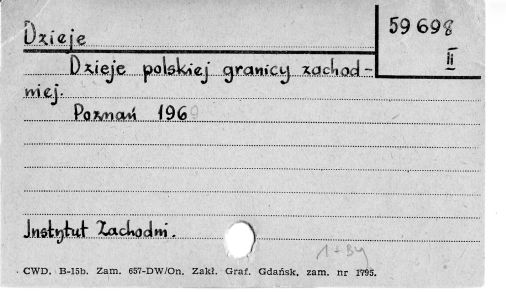 Dzieje
59 698
II
Dzieje polskiej granicy zachod-
niej.
Poznań 1960
Instytut Zachodni.
CWD. B-15b. Zam. 657-DW/On. Zakł. Graf. Gdańsk, zam. nr 1795.